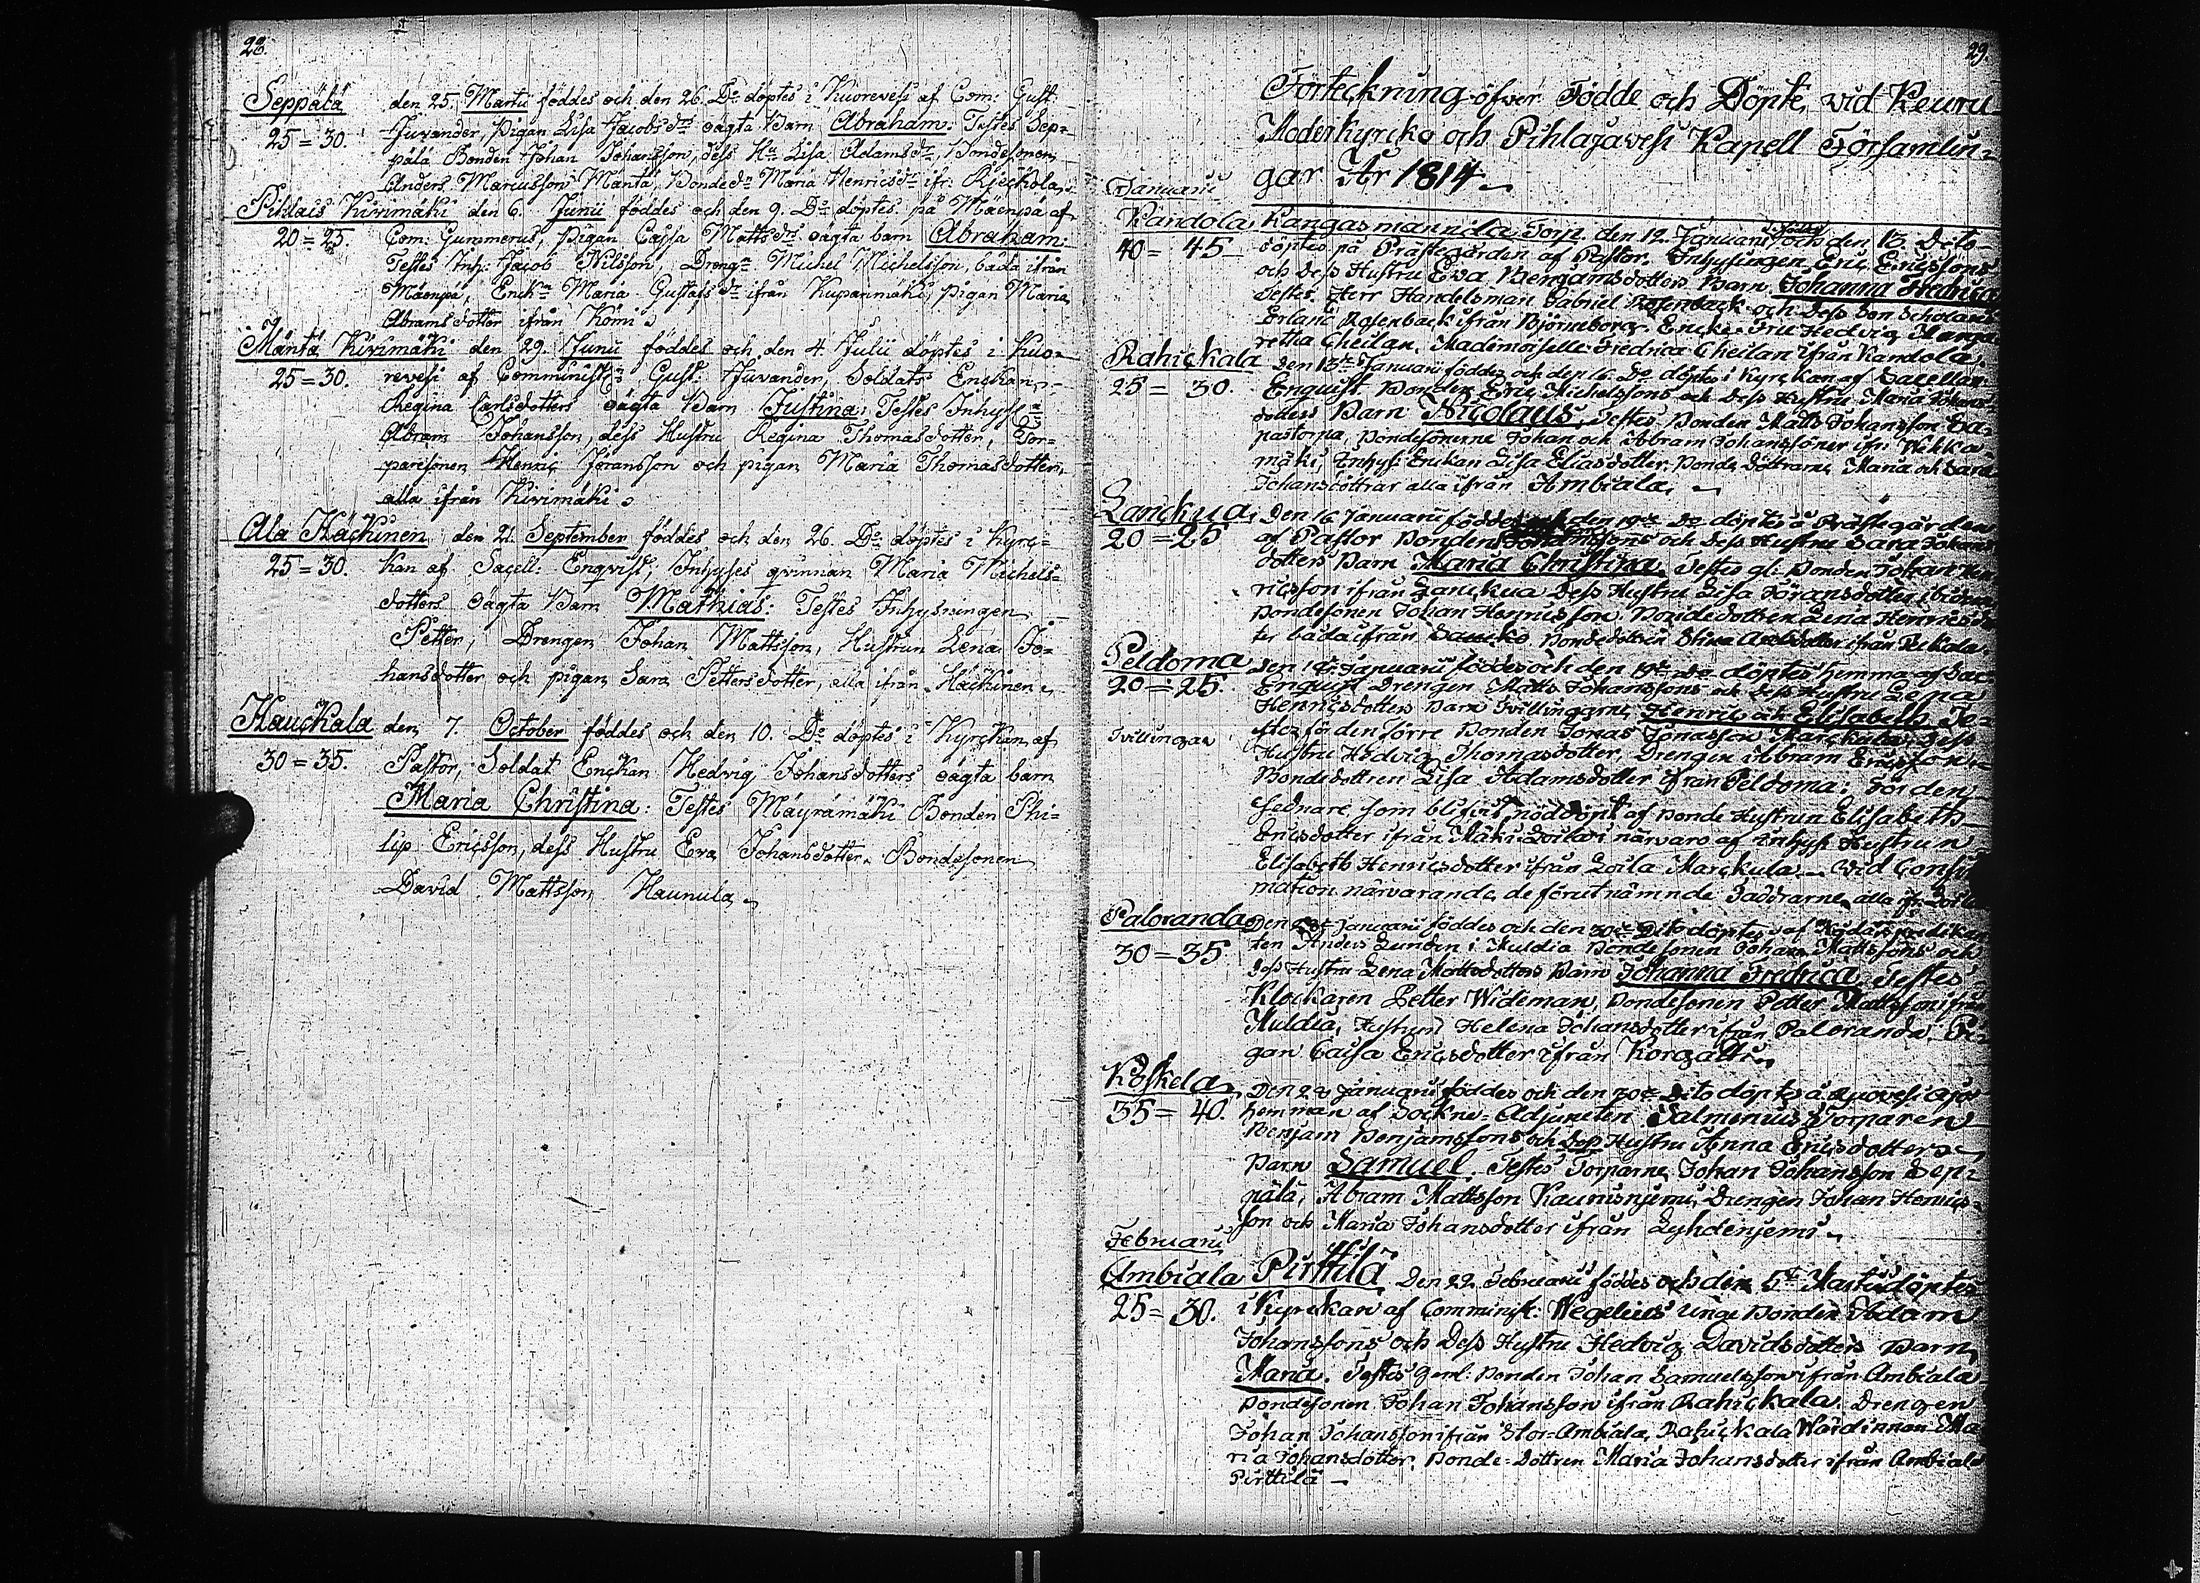 28.
Seppälä den 25. Martii föddes och den 26. Do döptes i Kuorevesi af Com: Gust:
25=30. Juvander, Pigan Lisa Jacobsdrs oägta Barn Abraham. Testes Sep=
pälä Bonden Johan Johansson, dess Hu Lisa Adamsdr, Bondesonen
Anders Marcusson Mäntä, Bondedn Maria Henricsdr ifr: Rieckola.
Pihlais Kivimäki den 6. Junii föddes och den 9. Do döptes på Mäenpä af
20=25. Com: Gummerus, Pigan Cajsa Mattsdrs oägta barn Abraham:
Testes Inh: Jacob Nilsson, Drengn Michel Michelsson, båda ifrån
Mäenpä, Enckn Maria Gustafsdr ifrån Kupanmäki, pigan Maria
Abramsdotter ifrån Kömi
Mäntä Kivimäki den 29. Junii föddes och den 4. Julii döptes i Kuo=
25=30. revesi af Communistrn Gust: Juvander, Soldats Enckan
Regina Carlsdotters oägta Barn Justina: Testes Inhyss
Abram Johansson, dess Hustru Regina Thomasdotter, Tor=
paresonen Henric Joransson och pigan Maria Thomasdotter,
alla ifrån Kivimäki
Ala Häckinen den 21. September föddes och den 26. Do döptes i Kyrc=
25=30. kan af Sacell: Enqvist, Inhyses qvinnan Maria Michels=
dotters oägta Barn Mathias: Testes Inhysningen
Petter, Drengen Johan Mattsson, Hustrun Lena Jo=
hansdotter och pigan Sara Pettersdotter, alla ifrån Häckinen
Hauckala den 7. October föddes och den 10. Do döptes i Kyrckan af
30=35. Pastor, Soldat Enckan Hedvig Johansdotters oägta barn
Maria Christina: Testes Mäyrämäki Bonden Phi=
lip Ericsson, dess Hustru Eva Johansdotter, Bondesonen
David Mattsson Haunula
29.
Förteckning öfwer Födde och Döpte, vid Keuru
Moderkyrcko och Pihlajavesi Kapell Församlin=
gar År 1814
Januarii
Kandola, Kangasmannila Torp den 12. Januarii och den 13. Dito
40=45 döptes på Prästegården af Pastor, Inhysingen Eric Ericssons
och Dess Hustru Eva Benjamsdotters Barn Johanna Fredrica
Testes Herr Handelsman Gabriel Rosenback och Dess Son Scholaris
Erland Rosenback ifrån Björneborg. Encke Fru Hedvig Marga
retha Cheilan, Mademoiselle Fredrica Cheilan ifrån Kandola.
Rahickala den 13de Januarii föddes och den 16. Do döptes i Kyrckan af Sacellan
25=30. Enquist Bonden Eric Michelssons och Dess Hustru Maria Johans
dotters Barn Nicolaus, Testes Bonden Matts Johansson
Bondesönerne Johan och Abram Johanssöner ifr: Wekka
mäki, Inhys: Enckan Lisa Eliasdotter, Bonde döttrarne Maria och Sara
Johansdöttrar alla ifrån Ambiala.
Lanckua, Den 16 Januarii föddes och den 19de Do döptes å Prästegården
20=25 af Pastor Bonden och Dess Hustru Sara Johans
dotters Barn Maria Christina. Testes gl. Bonden Johan Hen
ricsson ifrån Lanckua Dess Hustru Lisa Jöransdotter ibidem
Bondesonen Johan Henricsson Bondedottren Lena Henricsdot
ter båda ifrån Bondedottren Stina ifrån Rickala.
Peldoma Den Januarii föddes och den 19de Do döptes hemma af Sac:
20=25. Enquist Drengen Matts Johanssons och Dess Hustru Lena
Henricsdotters Barn Tvillingarne Henric och Elisabeth Te=
Tvillingar stes för den Förre Bonden Jonas Jonasson Marckula Dess
Hustru Hedvig Thomasdotter, Drengen Abram Ericsson
Bondedottren Lisa Adamsdotter ifrån Peldoma: För den
sednare som blifvit nöddöpt af Bonde Hustrun Elisabeth
Ericsdotter ifrån Mäki Loila i närvaro af Inhys: Hustrun
Elisabeth Henricsdotter ifrån Loila Marckula. Vid Confir
mation närvarande de förutnämnde Faddrarne, alla ifr. Loila
Paloranda Den Januarii föddes och den 30de Dito döptes af
30=35 ten Anders Lunden i Muldia Bondesonen Johan Mattssons och
dess Hustru Lena Mattsdotters Barn Johanna Fredrica Testes
Klockaren Petter Wideman, Bondesonen Petter Mattsson ifrån
Muldia, Hustrun Helena Johansdotter ifrån Paloranda. Pi=
gan Caisa Ericsdotter ifrån
Koskela Den 28 Januarii föddes och den 30de Dito döptes å
35=40. hemman af Sockne-Adjuncten Salmenius Torparen
Benjam Benjamssons och Dess Hustru Anna Ericsdotters
Barn Samuel. Testes Torparne Johan Johansson Sep=
pälä, Abram Mattsson Kaunisnjemi, Drengen Johan Henrics=
son och Maria Johansdotter ifrån Lyhdenjemi
Februarii
Ambiala Pirttilä Den 22 Februarii föddes och den 5te Martii döptes
25=30. i Kyrckan af Comminist: Wegelius Unge Bonden Adam
Johanssons och Dess Hustru Hedvig Davidsdotters Barn
Maria. Testes Geml: Bonden Johan Samuelsson ifrån Ambiala
Bondesonen Johan Johansson ifrån Rahickala. Drengen
Johan Johansson ifrån Stor-Ambiala, Rahickala Wärdinnan Ma
ria Johansdotter. Bonde-Dottren Maria Johansdotter ifrån Ambiala
Pirttilä